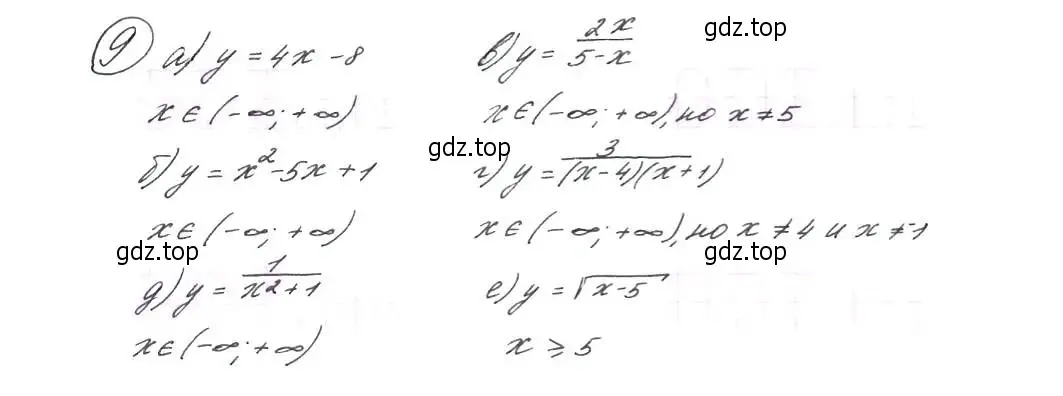 9 а) y = 4x - 8
x ∈ (-∞; +∞)
б) y = x² - 5x + 1
x ∈ (-∞; +∞)
д) y = 1/(x² + 1)
x ∈ (-∞; +∞)
в) y = 2x/(5 - x)
x ∈ (-∞; +∞), но x ≠ 5
г) y = 3/((x - 4)(x + 1))
x ∈ (-∞; +∞), но x ≠ 4 и x ≠ -1
е) y = √(x - 5)
x ⩾ 5
gdz.top
gdz.top
gdz.top
gdz.top